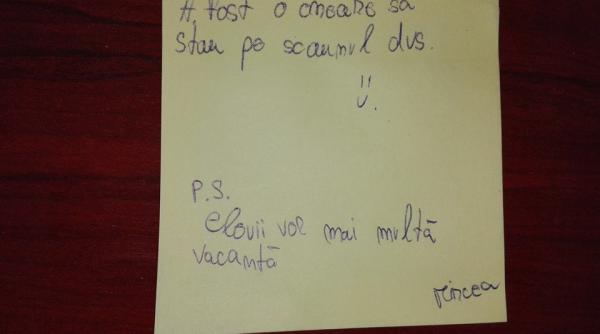 A fost o onoare să
stau pe scaunul dvs.
P.S.
elevii vor mai multă
vacantă
Mircea